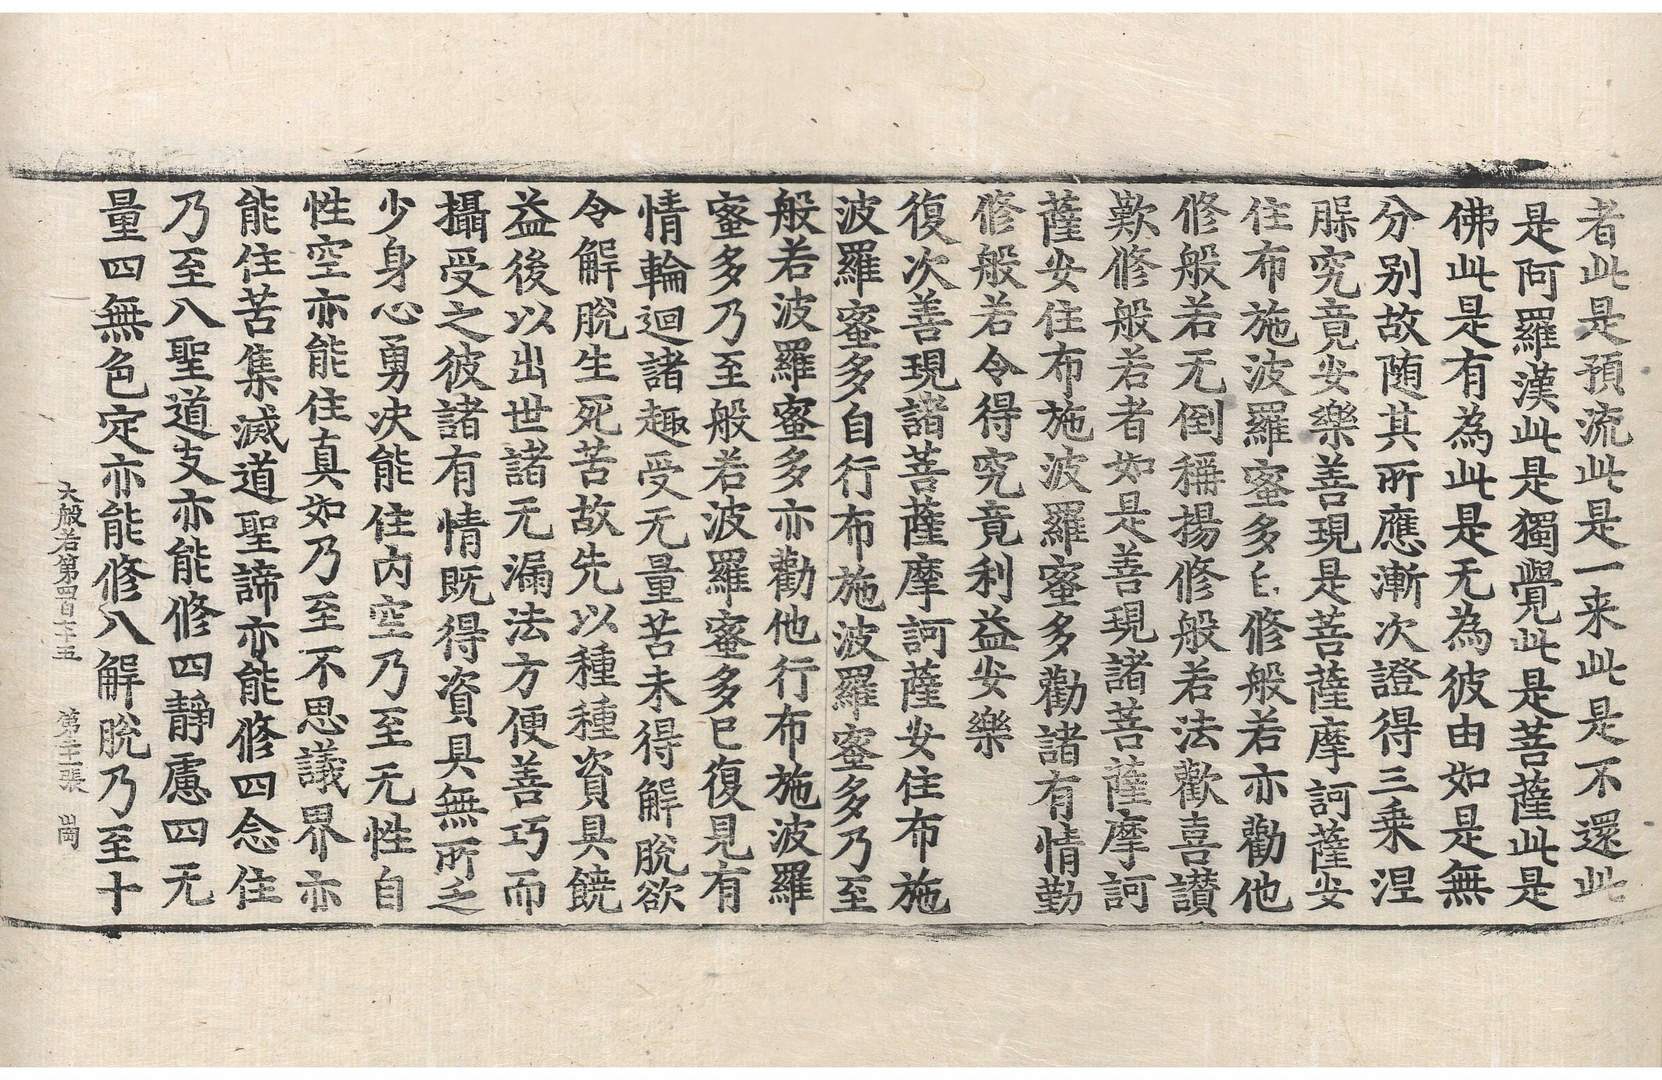 者此是預流此是一来此是不還此
是阿羅漢此是獨覺此是菩薩此是
佛此是有為此是无為彼由如是無
分別故随其所應漸次證得三乗涅
㬳究竟安樂善現是菩薩摩訶薩安
住布施波羅蜜多自修般若亦勸他
修般若无倒稱揚修般若法歡喜讃
歎修般若者如是善現諸菩薩摩訶
薩安住布施波羅蜜多勸諸有情勤
修般若令得究竟利益安樂
復次善現諸菩薩摩訶薩安住布施
波羅蜜多自行布施波羅蜜多乃至
般若波羅蜜多亦勸他行布施波羅
蜜多乃至般若波羅蜜多已復見有
情輪迴諸趣受无量苦未得解脫欲
令解脫生死苦故先以種種資具饒
益後以出世諸无漏法方便善巧而
攝受之彼諸有情既得資具無所乏
少身心勇决能住内空乃至无性自
性空亦能住真如乃至不思議界亦
能住苦集滅道聖諦亦能修四念住
乃至八聖道支亦能修四靜慮四无
量四無色定亦能修八解脫乃至十
大般若第四百七十五 第二十三張 崗